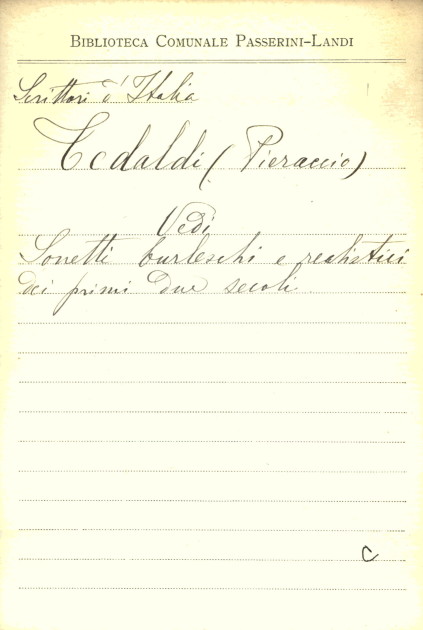 BIBLIOTECA COMUNALE PASSERINI-LANDI
Scrittori d'Italia
Tedaldi (Pieraccio)
Vedi
Sonetti burleschi e realistici
dei primi due secoli
C